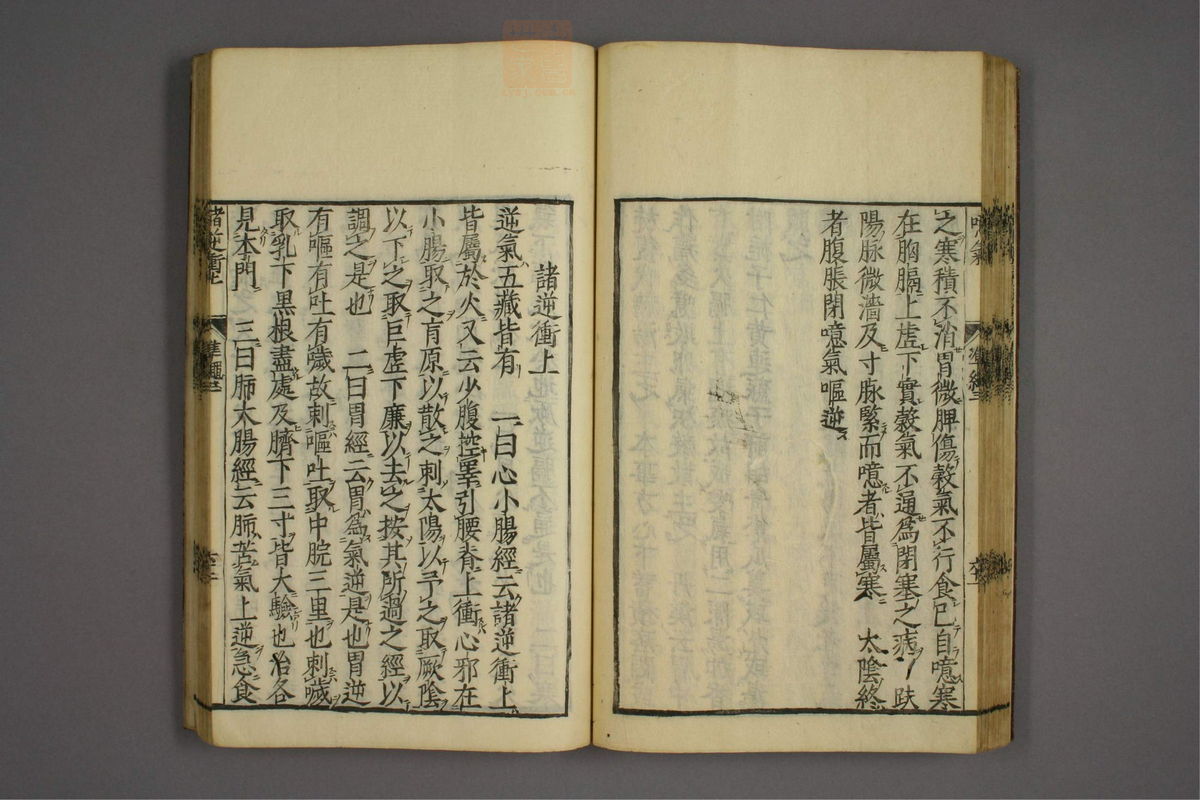 噫氣
之寒積不消胃微脾傷穀氣不行食已自噫寒
在胸膈上虚下實穀氣不通爲閉塞之病 趺
陽脉微濇及寸脉緊而噫者皆屬寒 太陰終
者腹脹閉噫氣嘔逆
諸逆衝上
逆氣五藏皆有 一曰心小腸經云諸逆衝上
皆屬於火又云少腹控睪引腰脊上衝心邪在
小腸取之肓原以散之刺太陽以予之取厥陰
以下之取巨虚下廉以去之按其所過之經以
調之是也 二曰胃經云胃爲氣逆是也胃逆
有嘔有吐有噦故刺嘔吐取中脘三里也刺噦
取乳下黑根盡處及臍下三寸皆大驗也治各
見本門 三曰肺大腸經云肺苦氣上逆急食
諸逆衝上